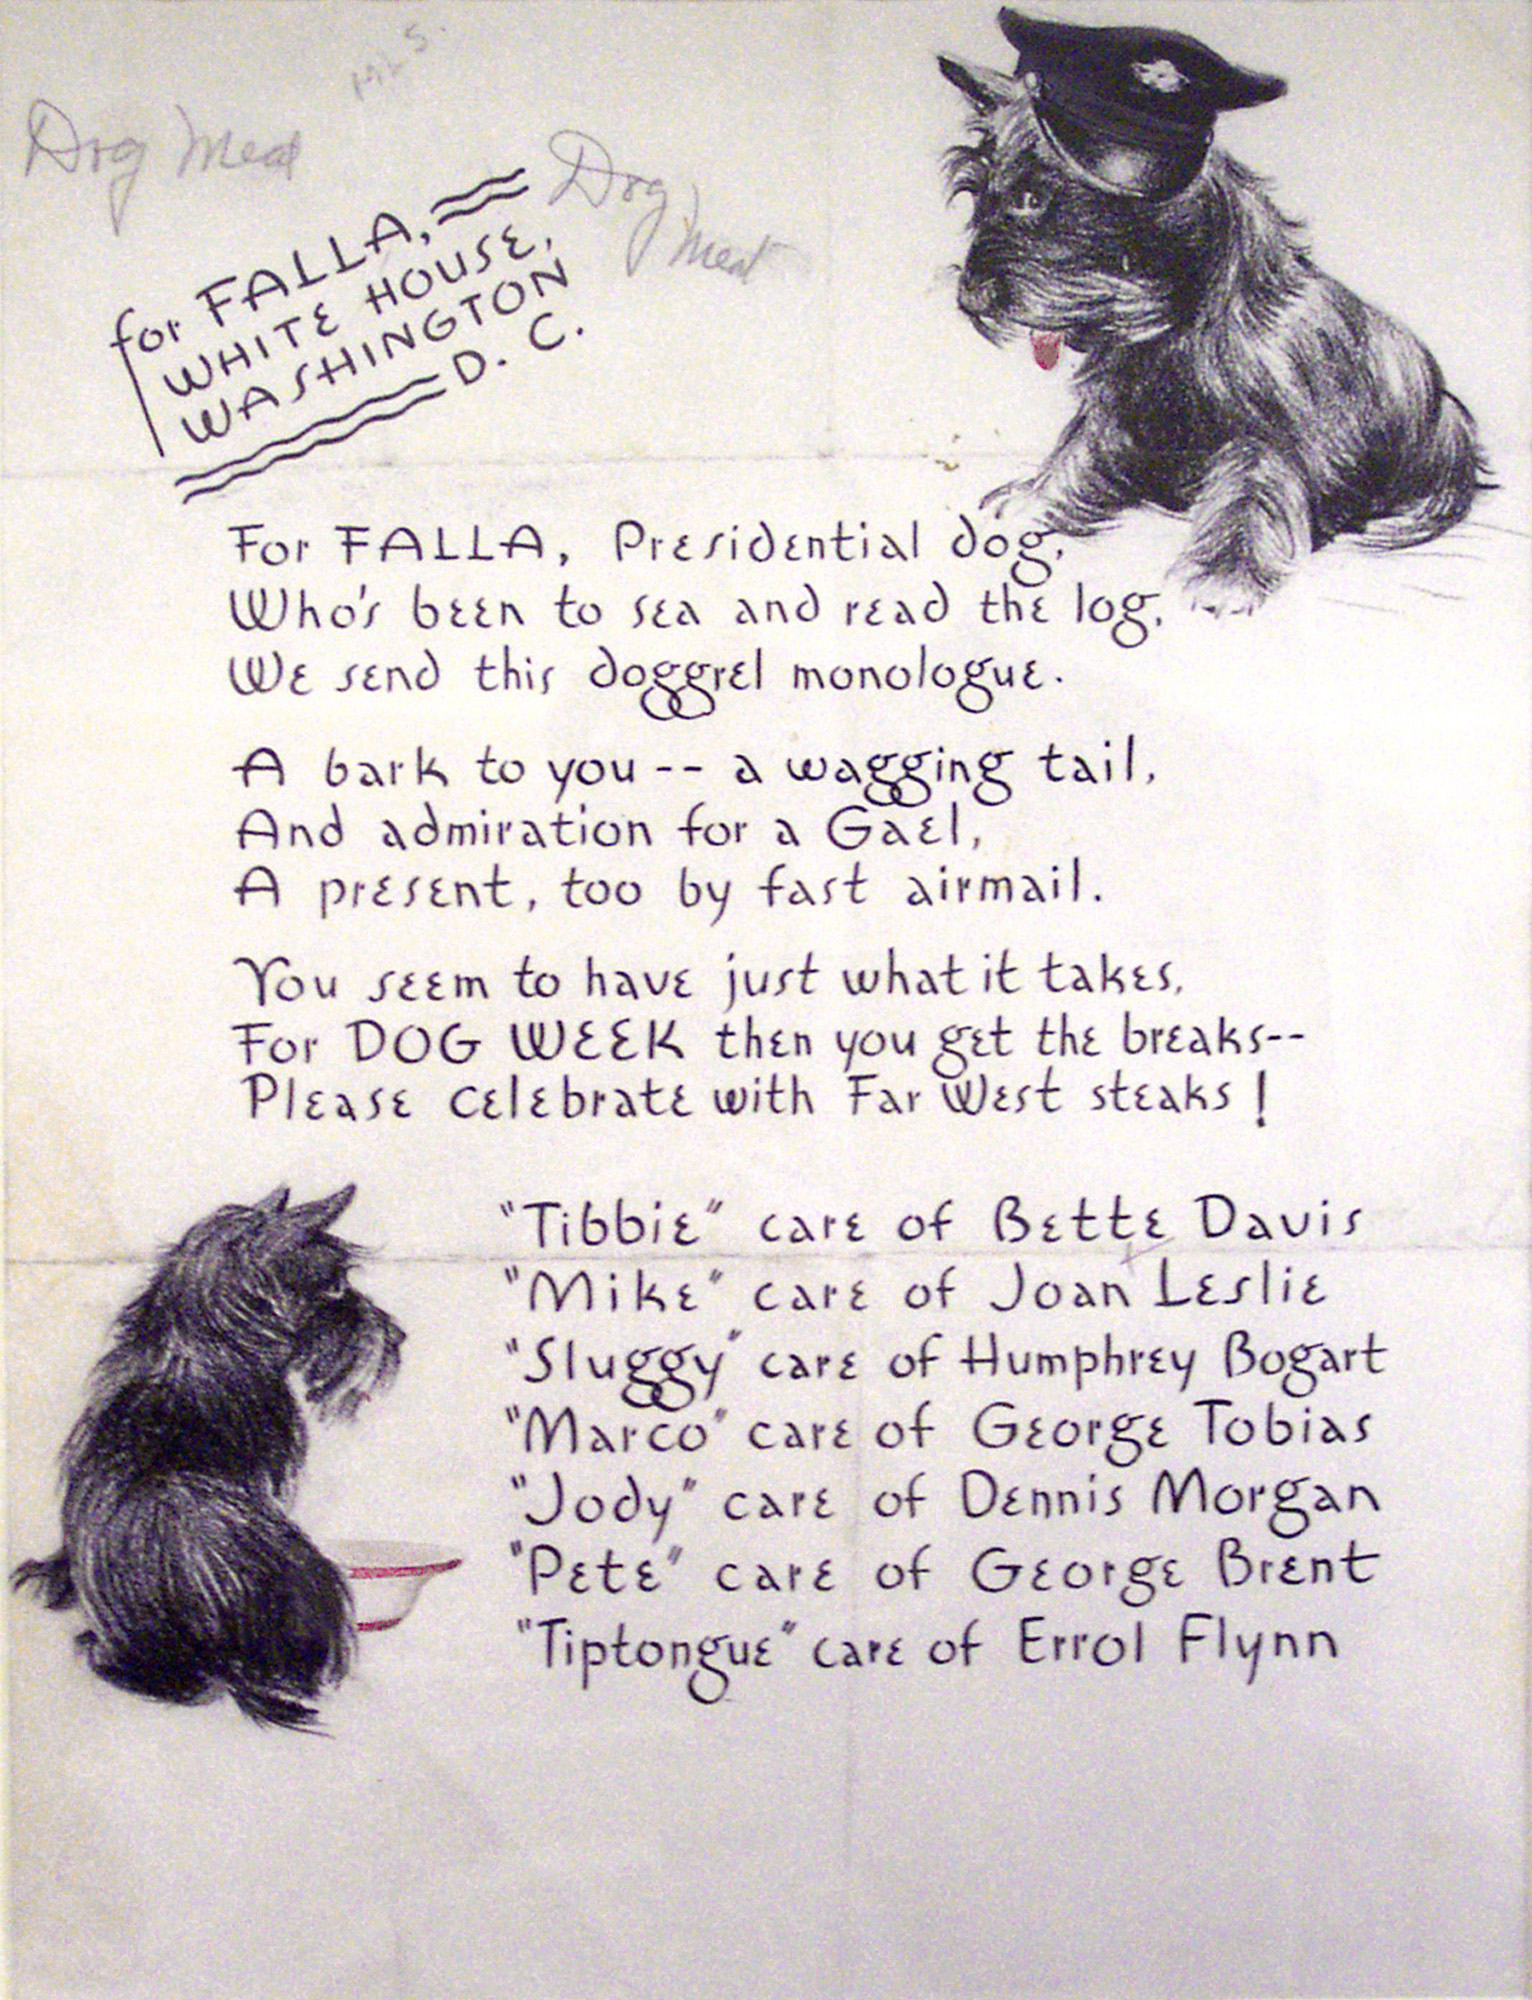 Dog Meat
Dog
Meat
for FALLA,
WHITE HOUSE,
WASHINGTON
D. C.
For FALLA, Presidential dog,
Who's been to sea and read the log,
We send this doggrel monologue.
A bark to you -- a wagging tail,
And admiration for a Gael,
A present, too by fast airmail.
You seem to have just what it takes,
For DOG WEEK then you get the breaks--
Please celebrate with Far West steaks!
"Tibbie" care of Bette Davis
"Mike" care of Joan Leslie
"Sluggy" care of Humphrey Bogart
"Marco" care of George Tobias
"Jody" care of Dennis Morgan
"Pete" care of George Brent
"Tiptongue" care of Errol Flynn